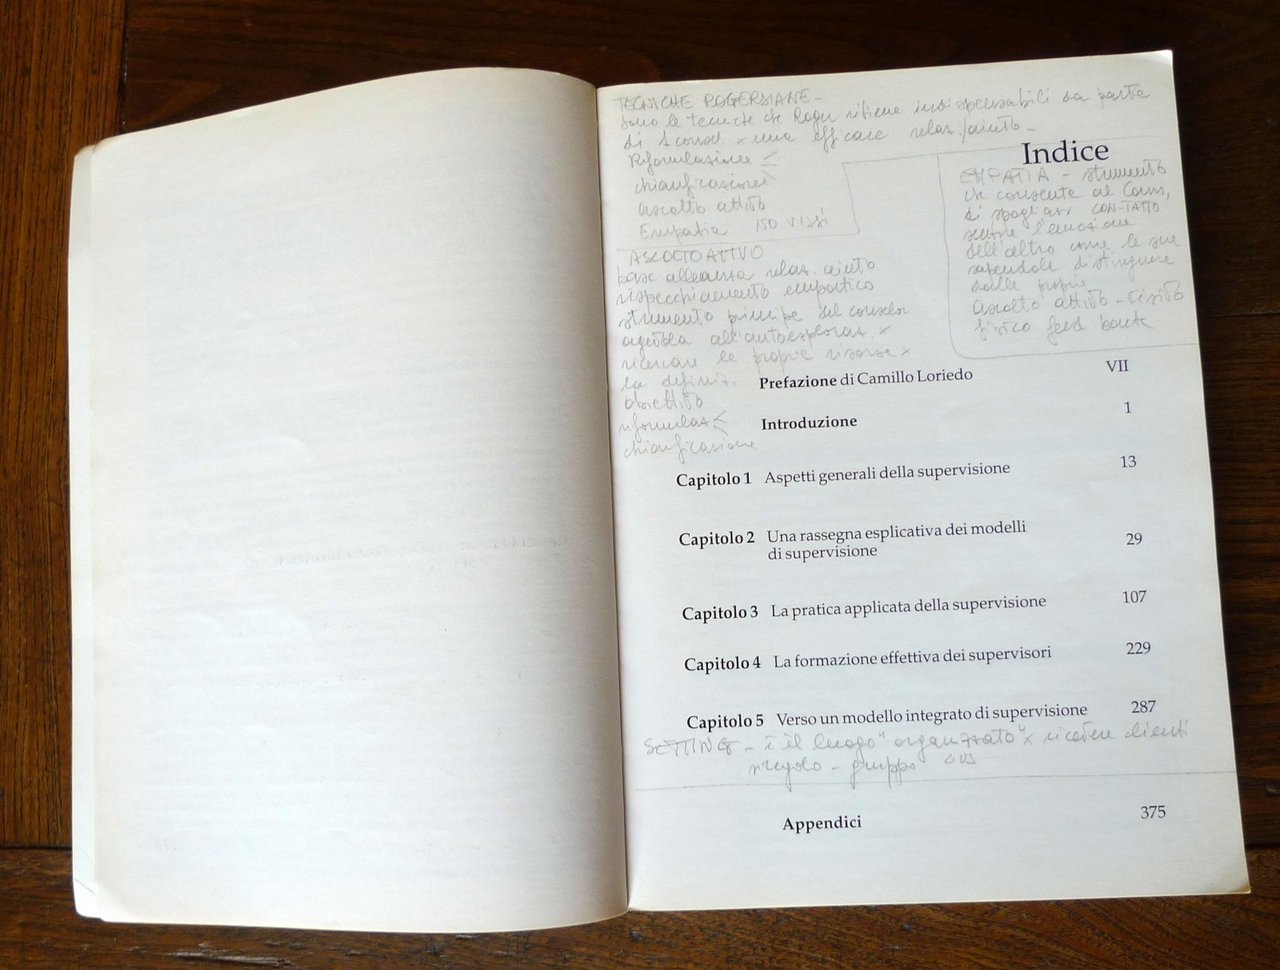 TECNICHE ROGERSIANE -
sono le tecniche che Roger ritiene indispensabili da parte
di x una efficace relaz. /aiuto -
Riformulazione
chiarificazione
ascolto attivo
Empatia
Indice
EMPATIA - strumento
che consente al Couns,
di spogliarsi CON-TATTO
sentire l'emozione
dell'altro come le sue
sapendole distinguere
dalle proprie
ascolto attivo -
fisico feed back
ASCOLTO ATTIVO
base alleanza relaz. aiuto
rispecchiamento empatico
strumento principe del counselor
agevola all'autoesploraz. x
ricercare le proprie risorse x
la definiz.
obiettivo
riformulaz
chiarificazione
Prefazione di Camillo Loriedo VII
Introduzione 1
Capitolo 1 Aspetti generali della supervisione 13
Capitolo 2 Una rassegna esplicativa dei modelli
di supervisione 29
Capitolo 3 La pratica applicata della supervisione 107
Capitolo 4 La formazione effettiva dei supervisori 229
Capitolo 5 Verso un modello integrato di supervisione 287
SETTING - è il luogo "organizzato" x ricevere clienti
singolo - gruppo
Appendici 375